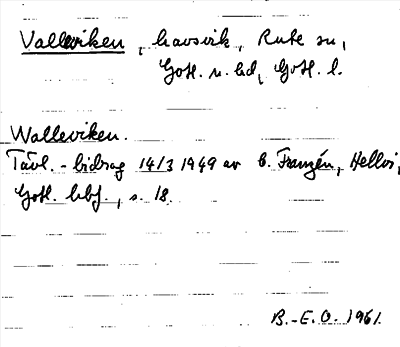 Valleviken, havsvik, Rute sn,
Gotl. n. hd, Gotl. l.
Walleviken.
Tävl.-bidrag 14/3 1949 av C. Franzén, Hellvi,
Gotl. hbf., s. 18.
B.-E.O. 1961.